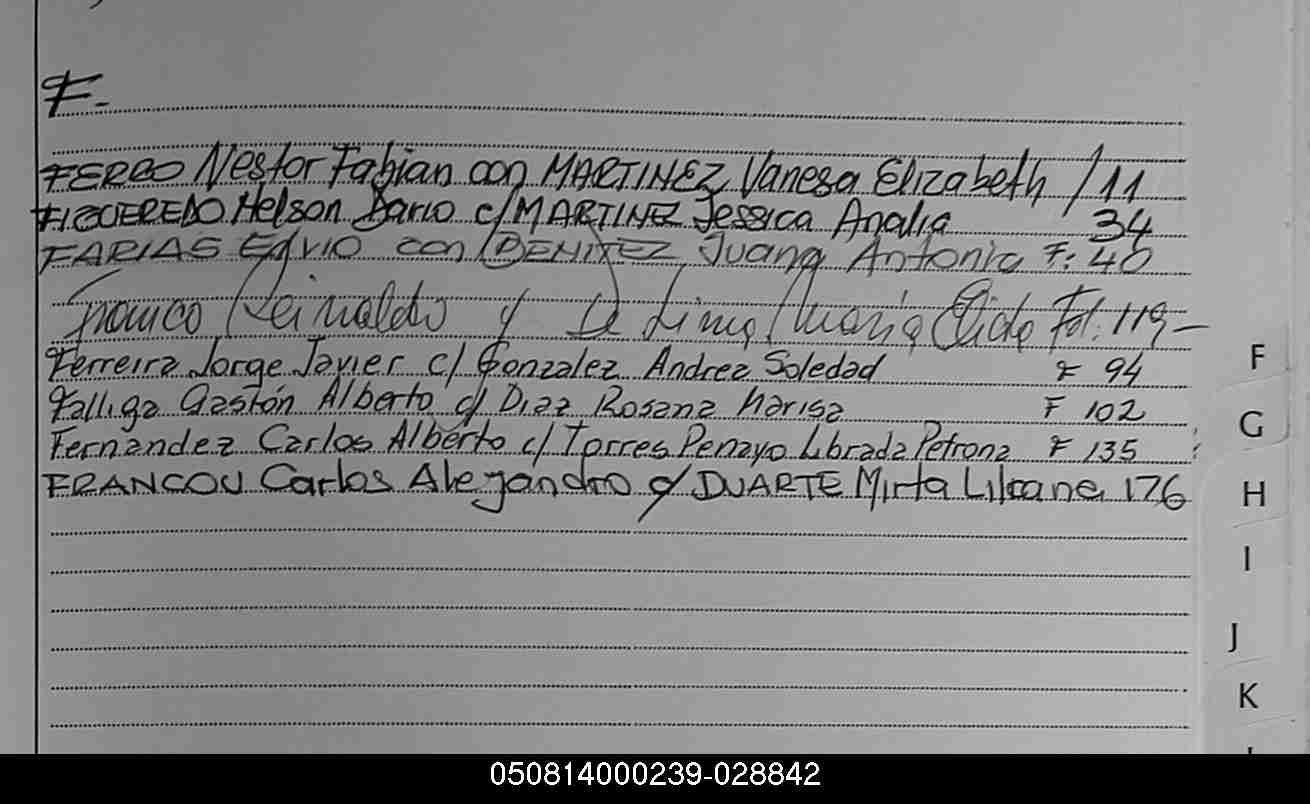 F.-
FERRO Nestor Fabian con MARTINEZ Vanesa Elizabeth / 11
FIGUEREDO Nelson Dario c/ MARTINEZ Jessica Analia 34
FARIAS con BENITEZ Juana Antonia F: 40
Franco Reinaldo y De Lima María Elida Fol: 119-
Ferreira Jorge Javier c/ Gonzalez Andrea Soledad F 94
Falliga Gastón Alberto c/ Diaz Rosana Marisa F 102
Fernandez Carlos Alberto c/ Torres Penayo Librada Petrona F 135
FRANCOU Carlos Alejandro c/ DUARTE Mirta Liliana 176
F
G
H
I
J
K
050814000239-028842